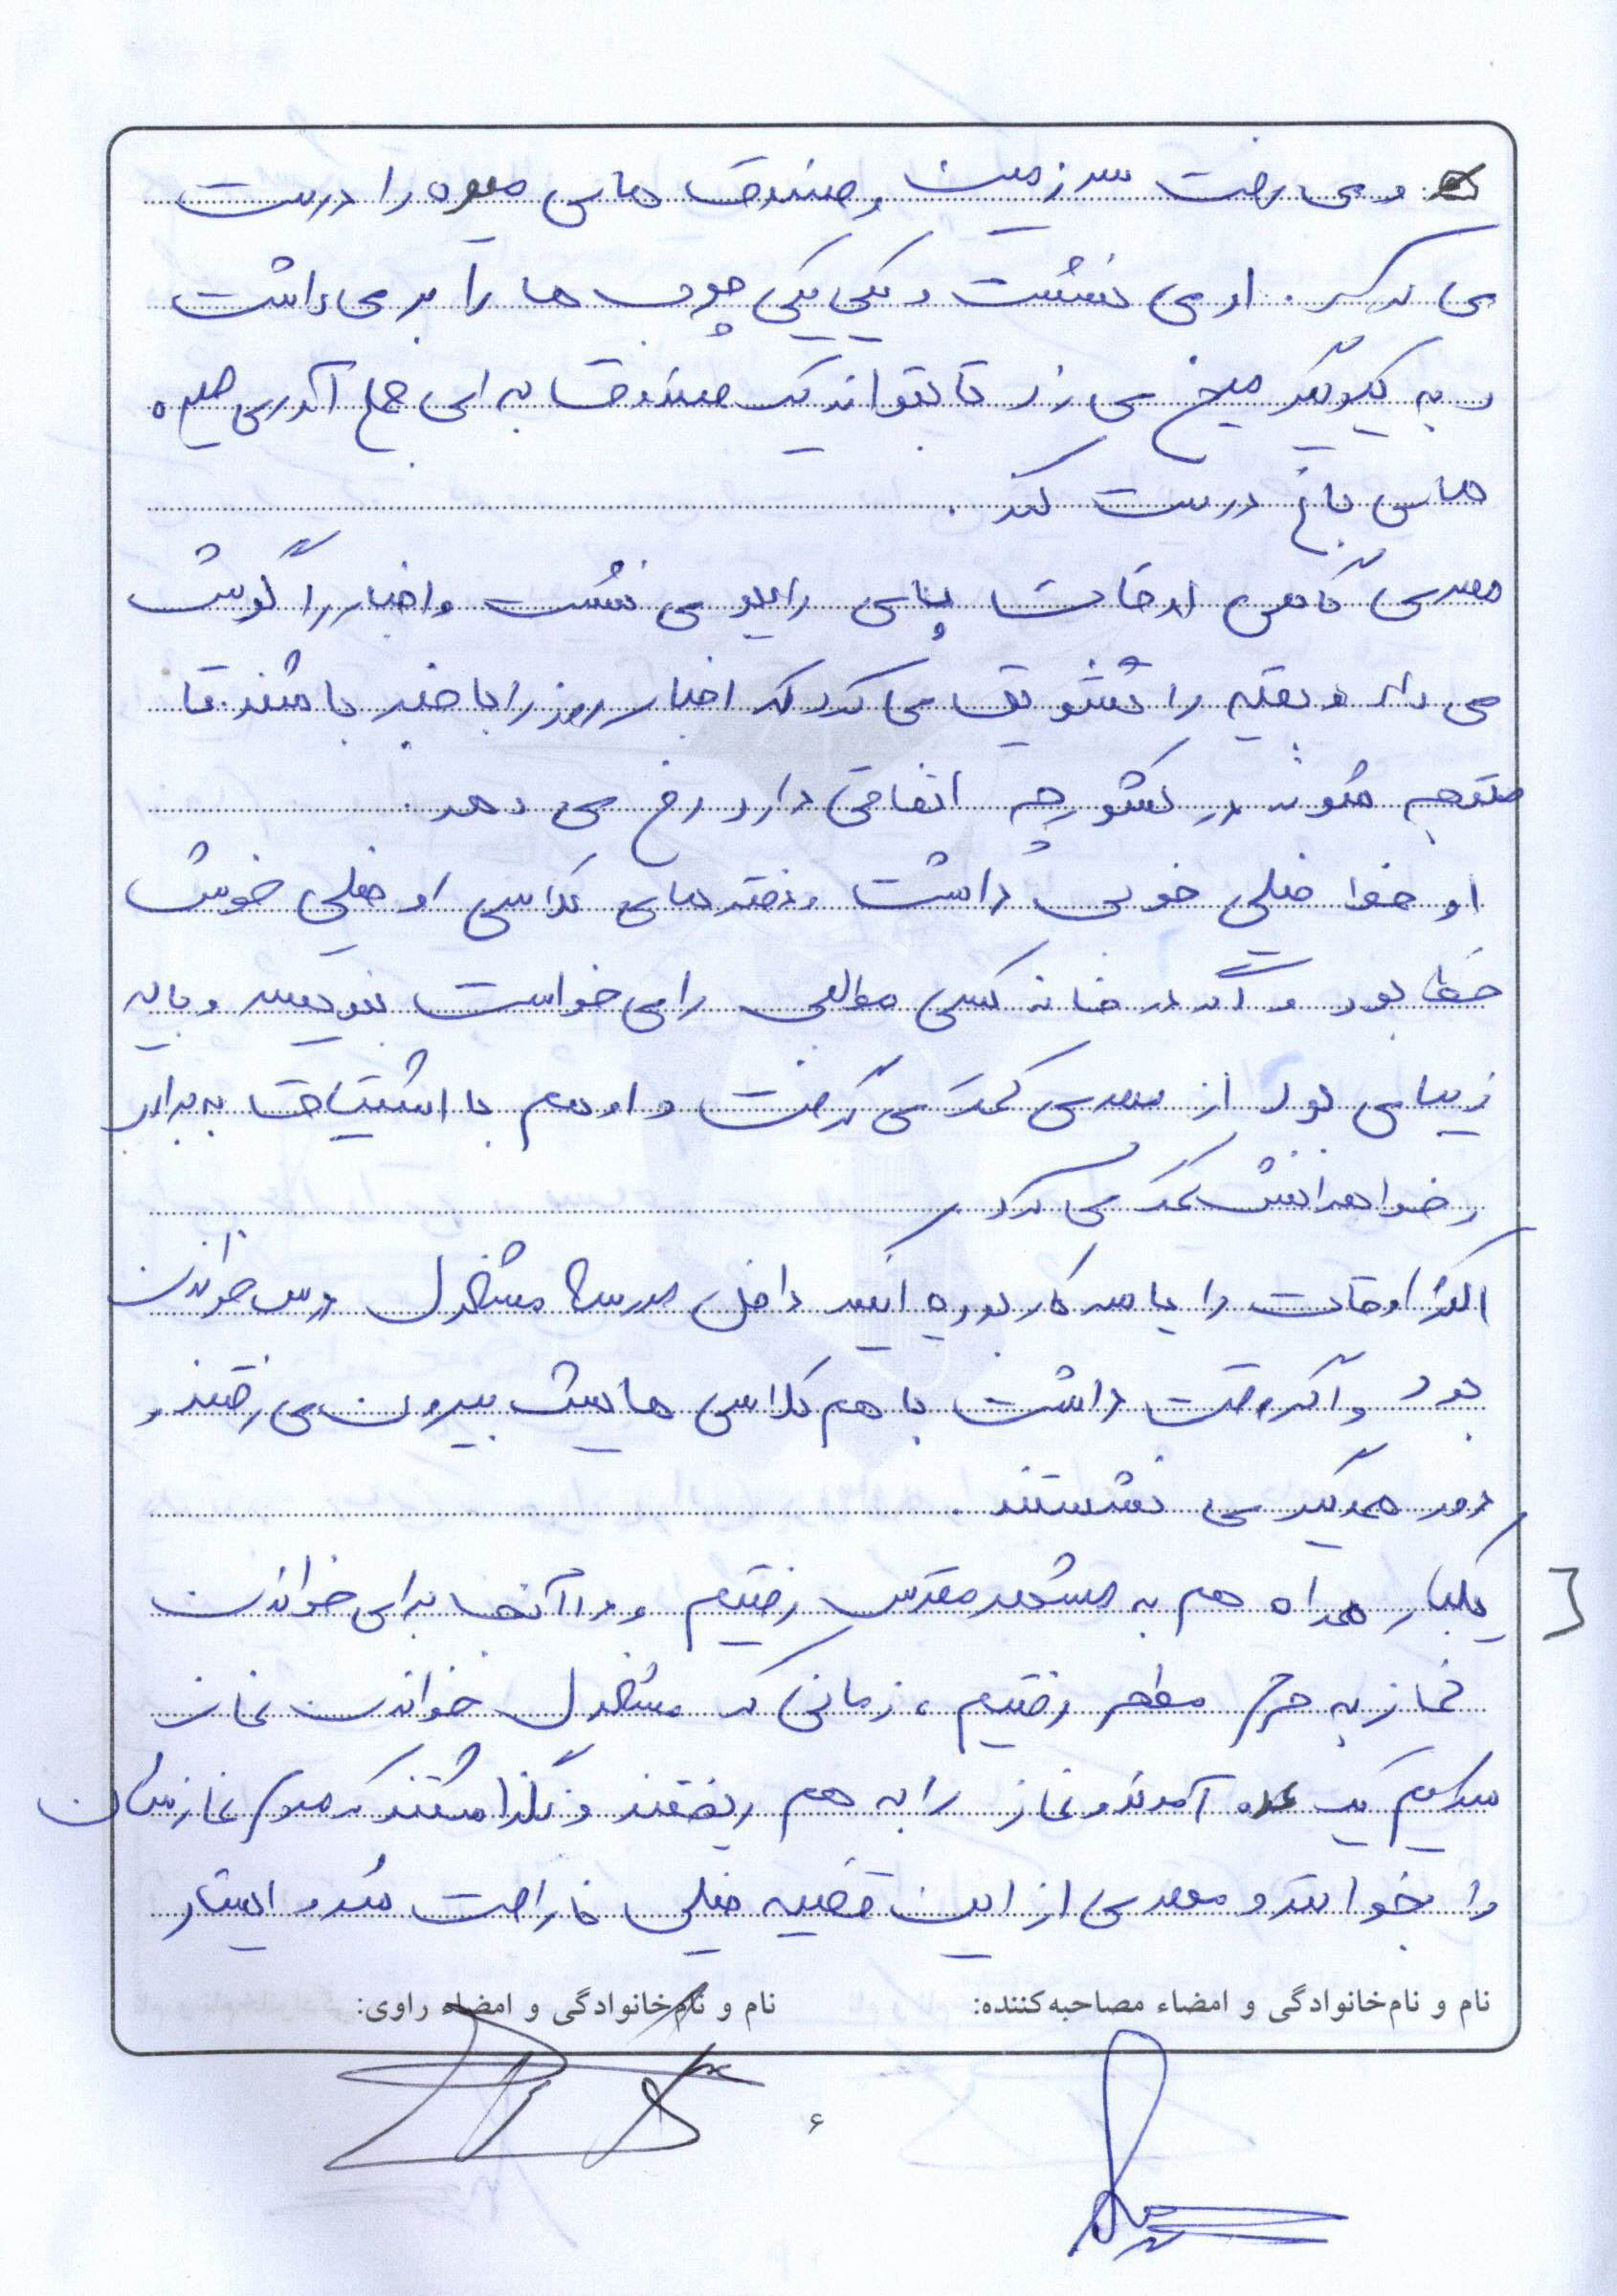 و می رفت سر زمین و صندوق های میوه را درست
می کرد. او می نشست و یکی یکی چوب ها را بر می داشت
و به یکدیگر میخ می زد تا بتواند یک صندوق برای جمع آوری میوه
های باغ درست کند.
مهدی گاهی اوقات پای رادیو می نشست و اخبار را گوش
می داد و بقیه را تشویق می کرد که اخبار روز را با خبر باشند تا
متوجه شوند در کشور چه اتفاقی دارد رخ می دهد.
او خط خیلی خوبی داشت و دفترهای کلاسی او خیلی خوش
خط بود و اگر در خانه کسی مطلبی را می خواست بنویسد و باید
زیبا می بود از مهدی کمک می گرفت و او هم با اشتیاق به برادر
و خواهرانش کمک می کرد.
اکثر اوقات را یا سر کار بود یا اینکه داخل مدرسه مشغول درس خواندن
بود و اگر وقت داشت با هم کلاسی هایش بیرون می رفتند و
دور همدیگر می نشستند.
یکبار همراه هم به مشهد مقدس رفتیم و در آنجا برای خواندن
نماز به حرم مطهر رفتیم، زمانی که مشغول خواندن نماز
شدیم یک عده آمدند و نماز را به هم ریختند و نگذاشتند که مردم نمازشان
را بخوانند و مهدی از این قضیه خیلی ناراحت شد و ایستاد
نام و نام‌خانوادگی و امضاء مصاحبه‌کننده:
نام و نام‌خانوادگی و امضاء راوی:
۶